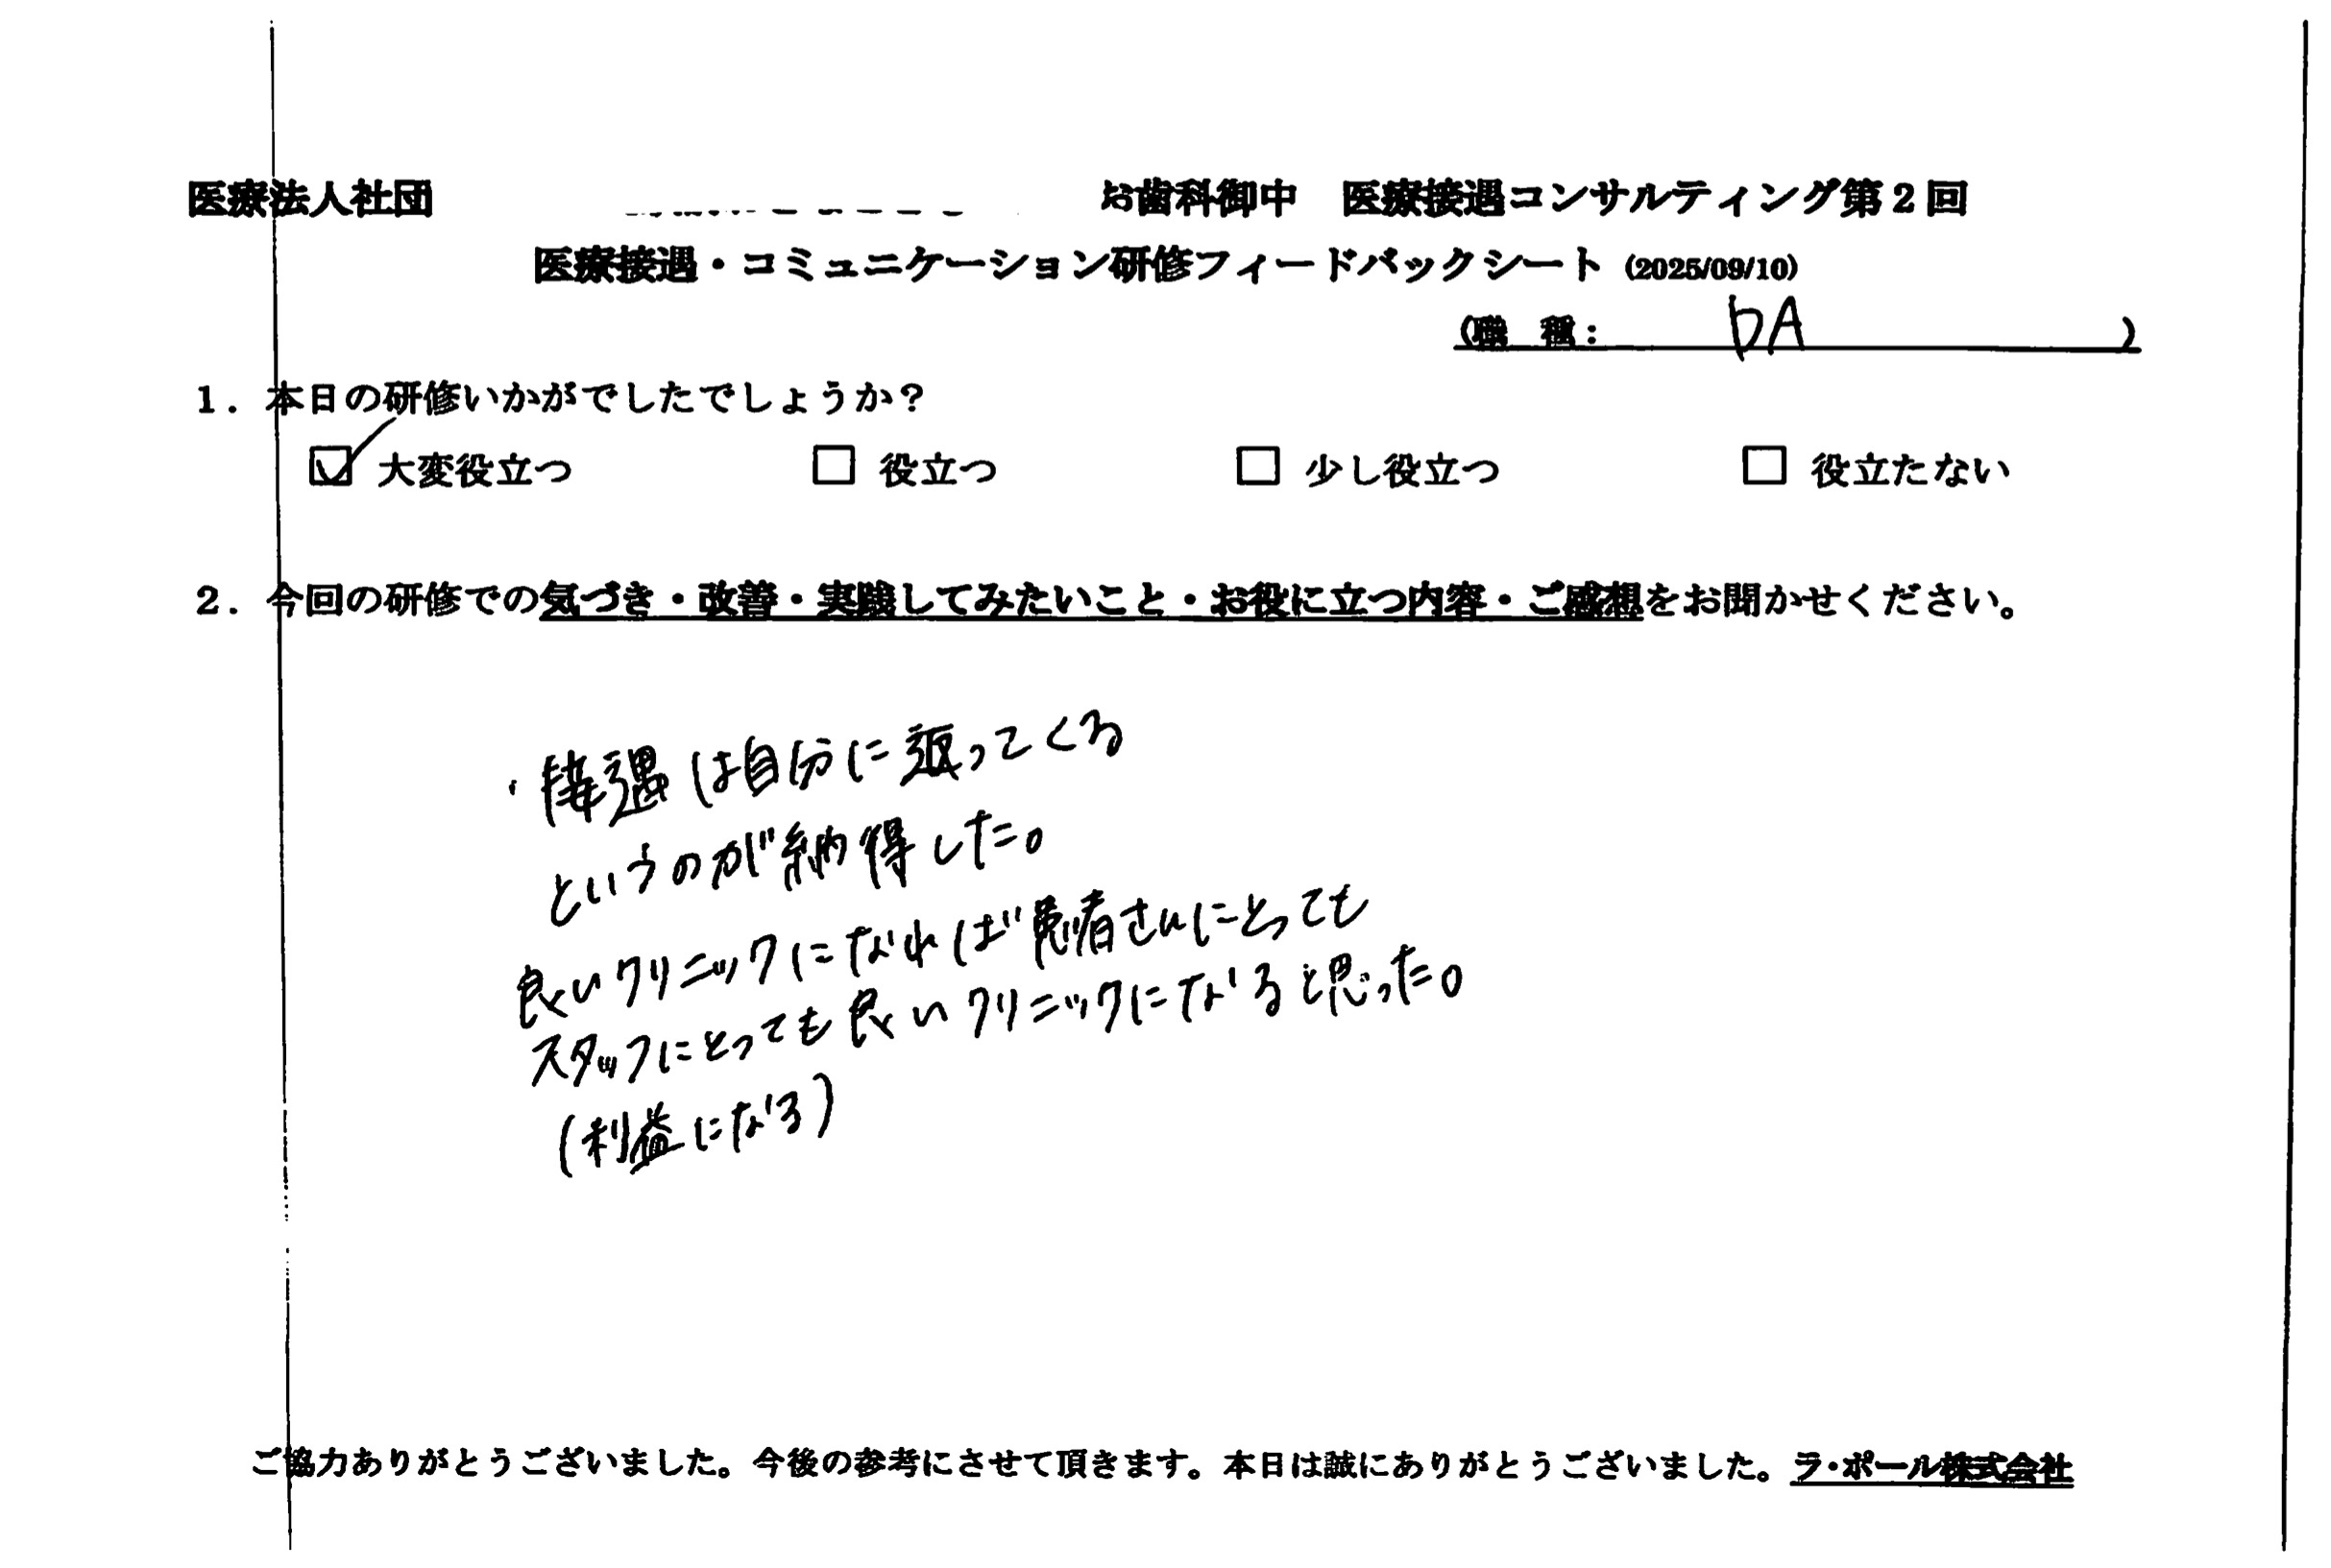 医療法人社団 お歯科御中 医療接遇コンサルティング第2回
医療接遇・コミュニケーション研修フィードバックシート (2025/09/10)
(職 種: DA )
1. 本日の研修いかがでしたでしょうか?
☑ 大変役立つ □ 役立つ □ 少し役立つ □ 役立たない
2. 今回の研修での気づき・改善・実践してみたいこと・お役に立つ内容・ご感想をお聞かせください。
・接遇は自分に返ってくる
というのが納得した。
良いクリニックになれば患者さんにとっても
スタッフにとっても良いクリニックになると思った。
(利益になる)
ご協力ありがとうございました。今後の参考にさせて頂きます。本日は誠にありがとうございました。ラ・ポール株式会社